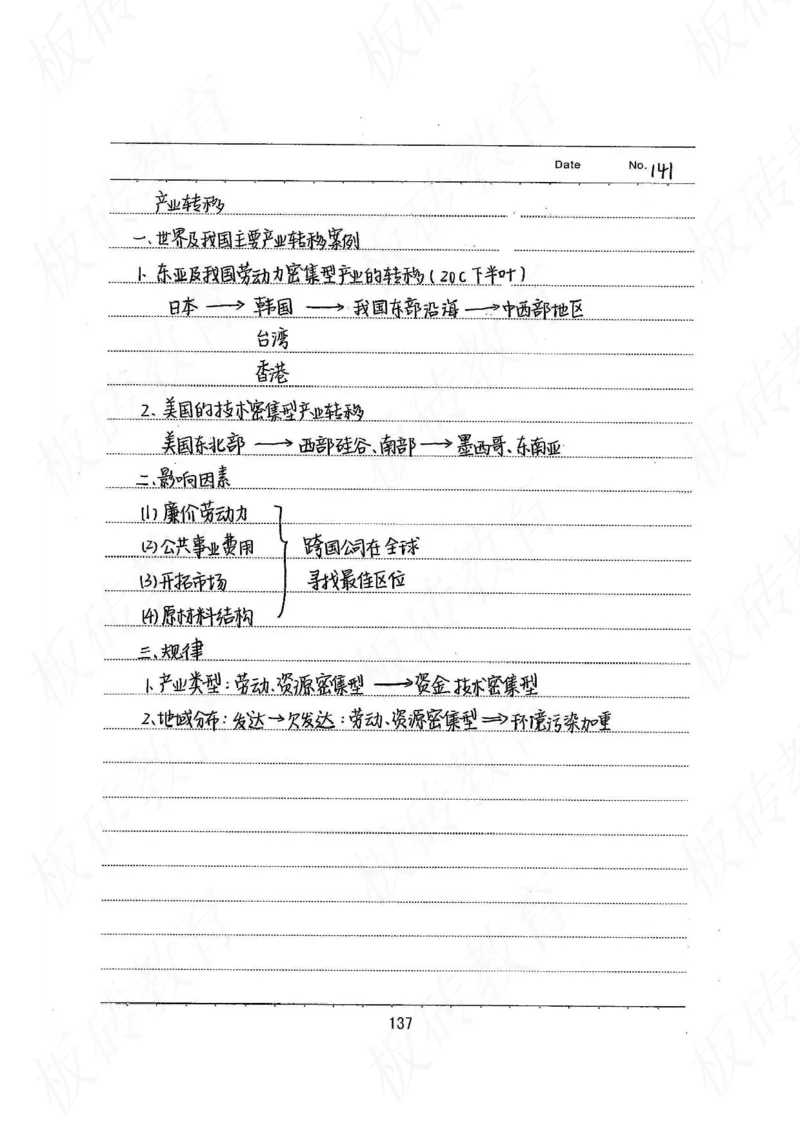 Date No. 141
产业转移
一、世界及我国主要产业转移案例
1. 东亚及我国劳动力密集型产业的转移(20C下半叶)
日本 → 韩国 → 我国东部沿海 → 中西部地区
台湾
香港
2、美国的技术密集型产业转移
美国东北部 → 西部硅谷、南部 → 墨西哥、东南亚
二、影响因素
(1) 廉价劳动力
(2) 公共事业费用 跨国公司在全球
(3) 开拓市场 寻找最佳区位
(4) 原材料结构
三、规律
1. 产业类型:劳动、资源密集型 → 资金、技术密集型
2、地域分布:发达→欠发达:劳动、资源密集型 ⇒ 环境污染加重
137
板砖教育